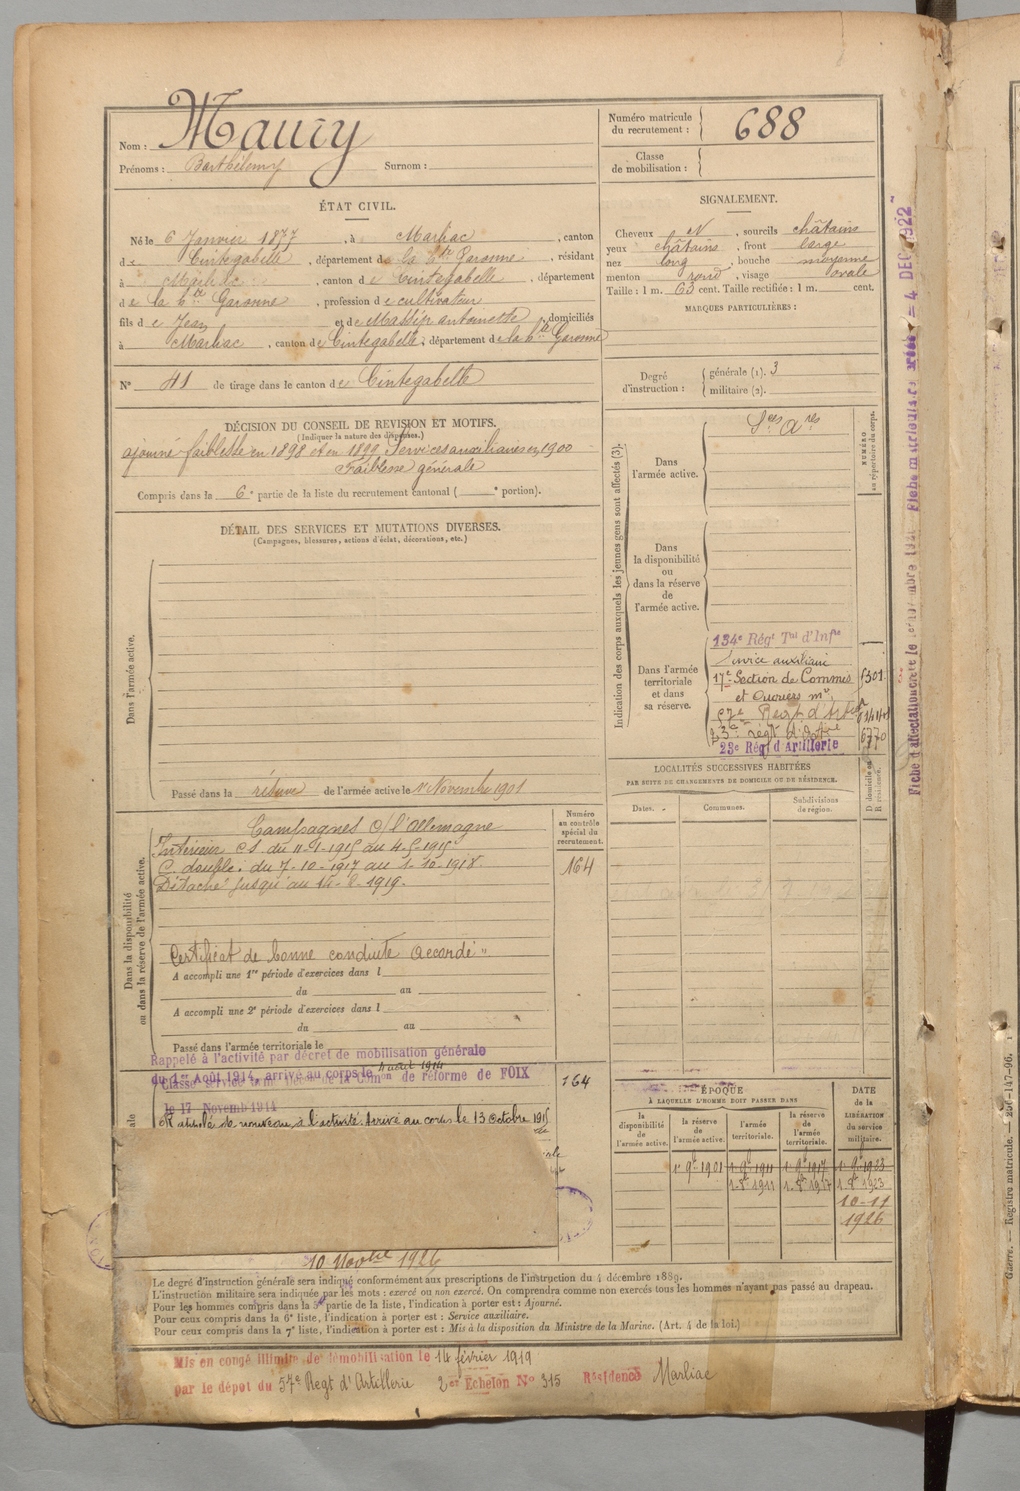 Nom : Maury
Prénoms : Barthélemy Surnom :
Numéro matricule du recrutement : 688
Classe de mobilisation :
ÉTAT CIVIL.
Né le 6 Janvier 1877, à Marliac, canton
de Cintegabelle, département de la Hte Garonne, résidant
à Marliac, canton de Cintegabelle, département
de la Hte Garonne, profession de cultivateur
fils de Jean et de Massip antoinette, domiciliés
à Marliac, canton de Cintegabelle, département de la Hte Garonne
N° 41 de tirage dans le canton de Cintegabelle
SIGNALEMENT.
Cheveux N, sourcils châtains
yeux châtains, front large
nez long, bouche moyenne
menton rond, visage ovale
Taille : 1 m. 63 cent. Taille rectifiée : 1 m. cent.
MARQUES PARTICULIÈRES :
Degré d'instruction : générale (1). 3
militaire (2).
DÉCISION DU CONSEIL DE REVISION ET MOTIFS.
(Indiquer la nature des dispenses.)
ajourné faiblesse en 1898 et en 1899 Services auxiliaires en 1900
Faiblesse générale
Compris dans la 6e partie de la liste du recrutement cantonal ( e portion).
DÉTAIL DES SERVICES ET MUTATIONS DIVERSES.
(Campagnes, blessures, actions d'éclat, décorations, etc.)
Dans l'armée active.
Passé dans la réserve de l'armée active le 1er Novembre 1901
Indication des corps auxquels les jeunes gens sont affectés (3).
NUMÉRO au répertoire du corps.
Dans l'armée active.
Ses Ares
Dans la disponibilité ou dans la réserve de l'armée active.
Dans l'armée territoriale et dans sa réserve.
134e Régt Tal d'Infie
Service auxiliaire
17e Section de Commis 6301
et Ouvriers mres
57e Regt d'Artie
23e régt d'artie 6770
23e Régt d'Artillerie
LOCALITÉS SUCCESSIVES HABITÉES
PAR SUITE DE CHANGEMENTS DE DOMICILE OU DE RÉSIDENCE.
Dates. Communes. Subdivisions de région.
D. domicile ou R. résidence.
Dans la disponibilité ou dans la réserve de l'armée active.
Numéro au contrôle spécial du recrutement.
Campagnes c/ l'Allemagne
Intérieur CS. du 11-1-1915 au 4-5-1915
C. double. du 7-10-1917 au 1-10-1918
Détaché jusqu'au 14-2-1919.
164
Certificat de bonne conduite accordé "
A accompli une 1re période d'exercices dans l
du au
A accompli une 2e période d'exercices dans l
du au
Passé dans l'armée territoriale le
Rappelé à l'activité par décret de mobilisation générale
du 1er Août 1914, arrivé au corps le 4 aout 1914
Classé service de réforme de FOIX
le 17 Novemb 1914
164
Rappelé de nouveau à l'activité. Arrivé au corps le 13 Octobre 1915
10 Novbre 1926
ÉPOQUE
À LAQUELLE L'HOMME DOIT PASSER DANS
la disponibilité de l'armée active. la réserve de l'armée active. l'armée territoriale. la réserve de l'armée territoriale.
DATE de la LIBÉRATION du service militaire.
1 9bre 1901 1 9bre 1911 1 9bre 1917 1 9bre 1923
1 8bre 1911 1 8bre 1917 1 8bre 1923
10-11
1926
Le degré d'instruction générale sera indiqué conformément aux prescriptions de l'instruction du 4 décembre 1889.
L'instruction militaire sera indiquée par les mots : exercé ou non exercé. On comprendra comme non exercés tous les hommes n'ayant pas passé au drapeau.
Pour les hommes compris dans la 5e partie de la liste, l'indication à porter est : Ajourné.
Pour ceux compris dans la 6e liste, l'indication à porter est : Service auxiliaire.
Pour ceux compris dans la 7e liste, l'indication à porter est : Mis à la disposition du Ministre de la Marine. (Art. 4 de la loi.)
Mis en congé illimité de démobilisation le 14 février 1919
par le dépot du 57e Regt d'Artillerie 2er Echelon N° 315 Résidence Marliac
4 DEC 1922
Guerre. — Registre matricule. — 256-147-96.